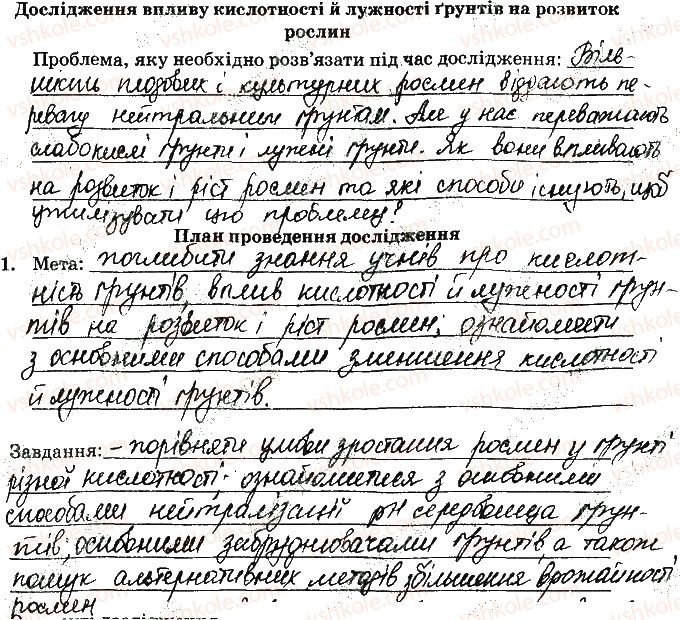 Дослідження впливу кислотності й лужності ґрунтів на розвиток
рослин
Проблема, яку необхідно розв'язати під час дослідження: Біль-
шість плодових і культурних рослин віддають пе-
ревагу нейтральним ґрунтам. Але у нас переважають
слабокислі ґрунти і лужні ґрунти. Як вони впливають
на розвиток і ріст рослин та які способи існують, щоб
цю проблему?
План проведення дослідження
1. Мета: поглибити знання учнів про кислот-
ність ґрунтів, вплив кислотності й лужності ґрун-
тів на розвиток і ріст рослин; ознайомити
з основними способами зменшення кислотності
й лужності ґрунтів.
Завдання: - порівняти умови зростання рослин у ґрунті
різної кислотності; ознайомитися з основними
способами нейтралізації рн середовища ґрун-
тів, основними забруднювачами ґрунтів, а також
пошук альтернативних методів збільшення врожайності
рослин